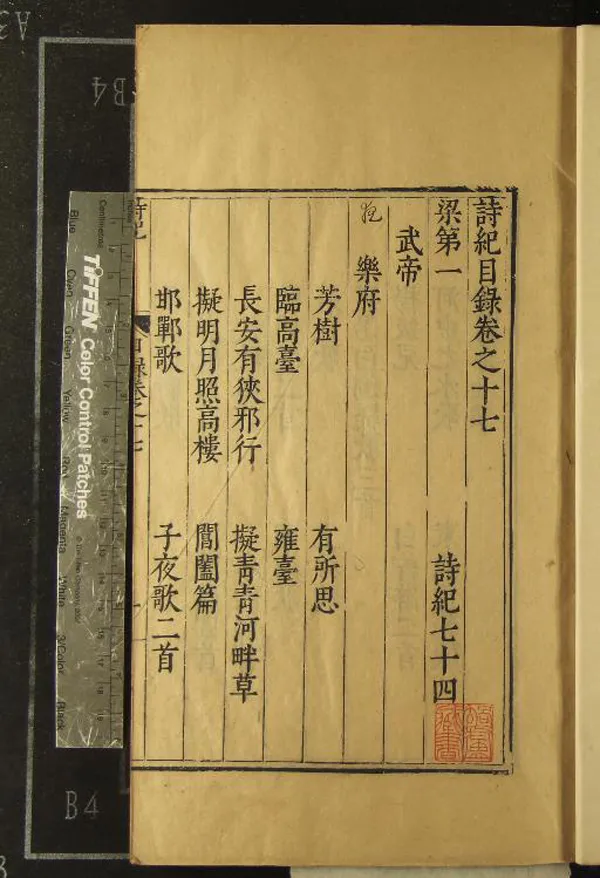 詩紀目錄卷之十七
梁第一 詩紀七十四
武帝
樂府
芳樹 有所思
臨高臺 雍臺
長安有狹邪行 擬青青河畔草
擬明月照高樓 閶闔篇
邯鄲歌 子夜歌二首
詩紀 目錄卷之十七
TIFFEN Color Control Patches
Centimetres
Blue
Cyan
Green
Yellow
Red
Magenta
White
3/Color
Black
B4
B4
A3